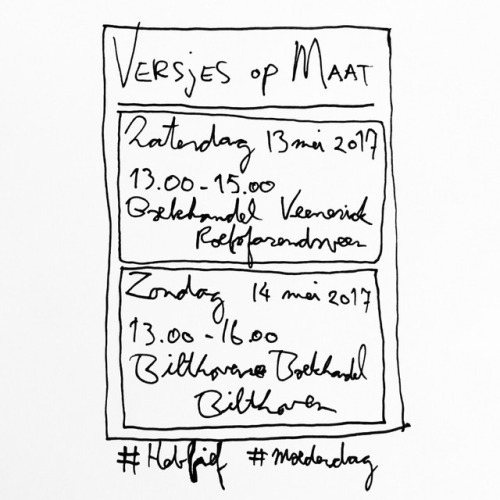 VERSjES op MAAT
Zaterdag 13 mei 2017
13.00-15.00
Boekhandel Veenerick
Roelofarendsveen
Zondag 14 mei 2017
13.00-16.00
Bilthovense Boekhandel
Bilthoven
#Hebfief #moederdag